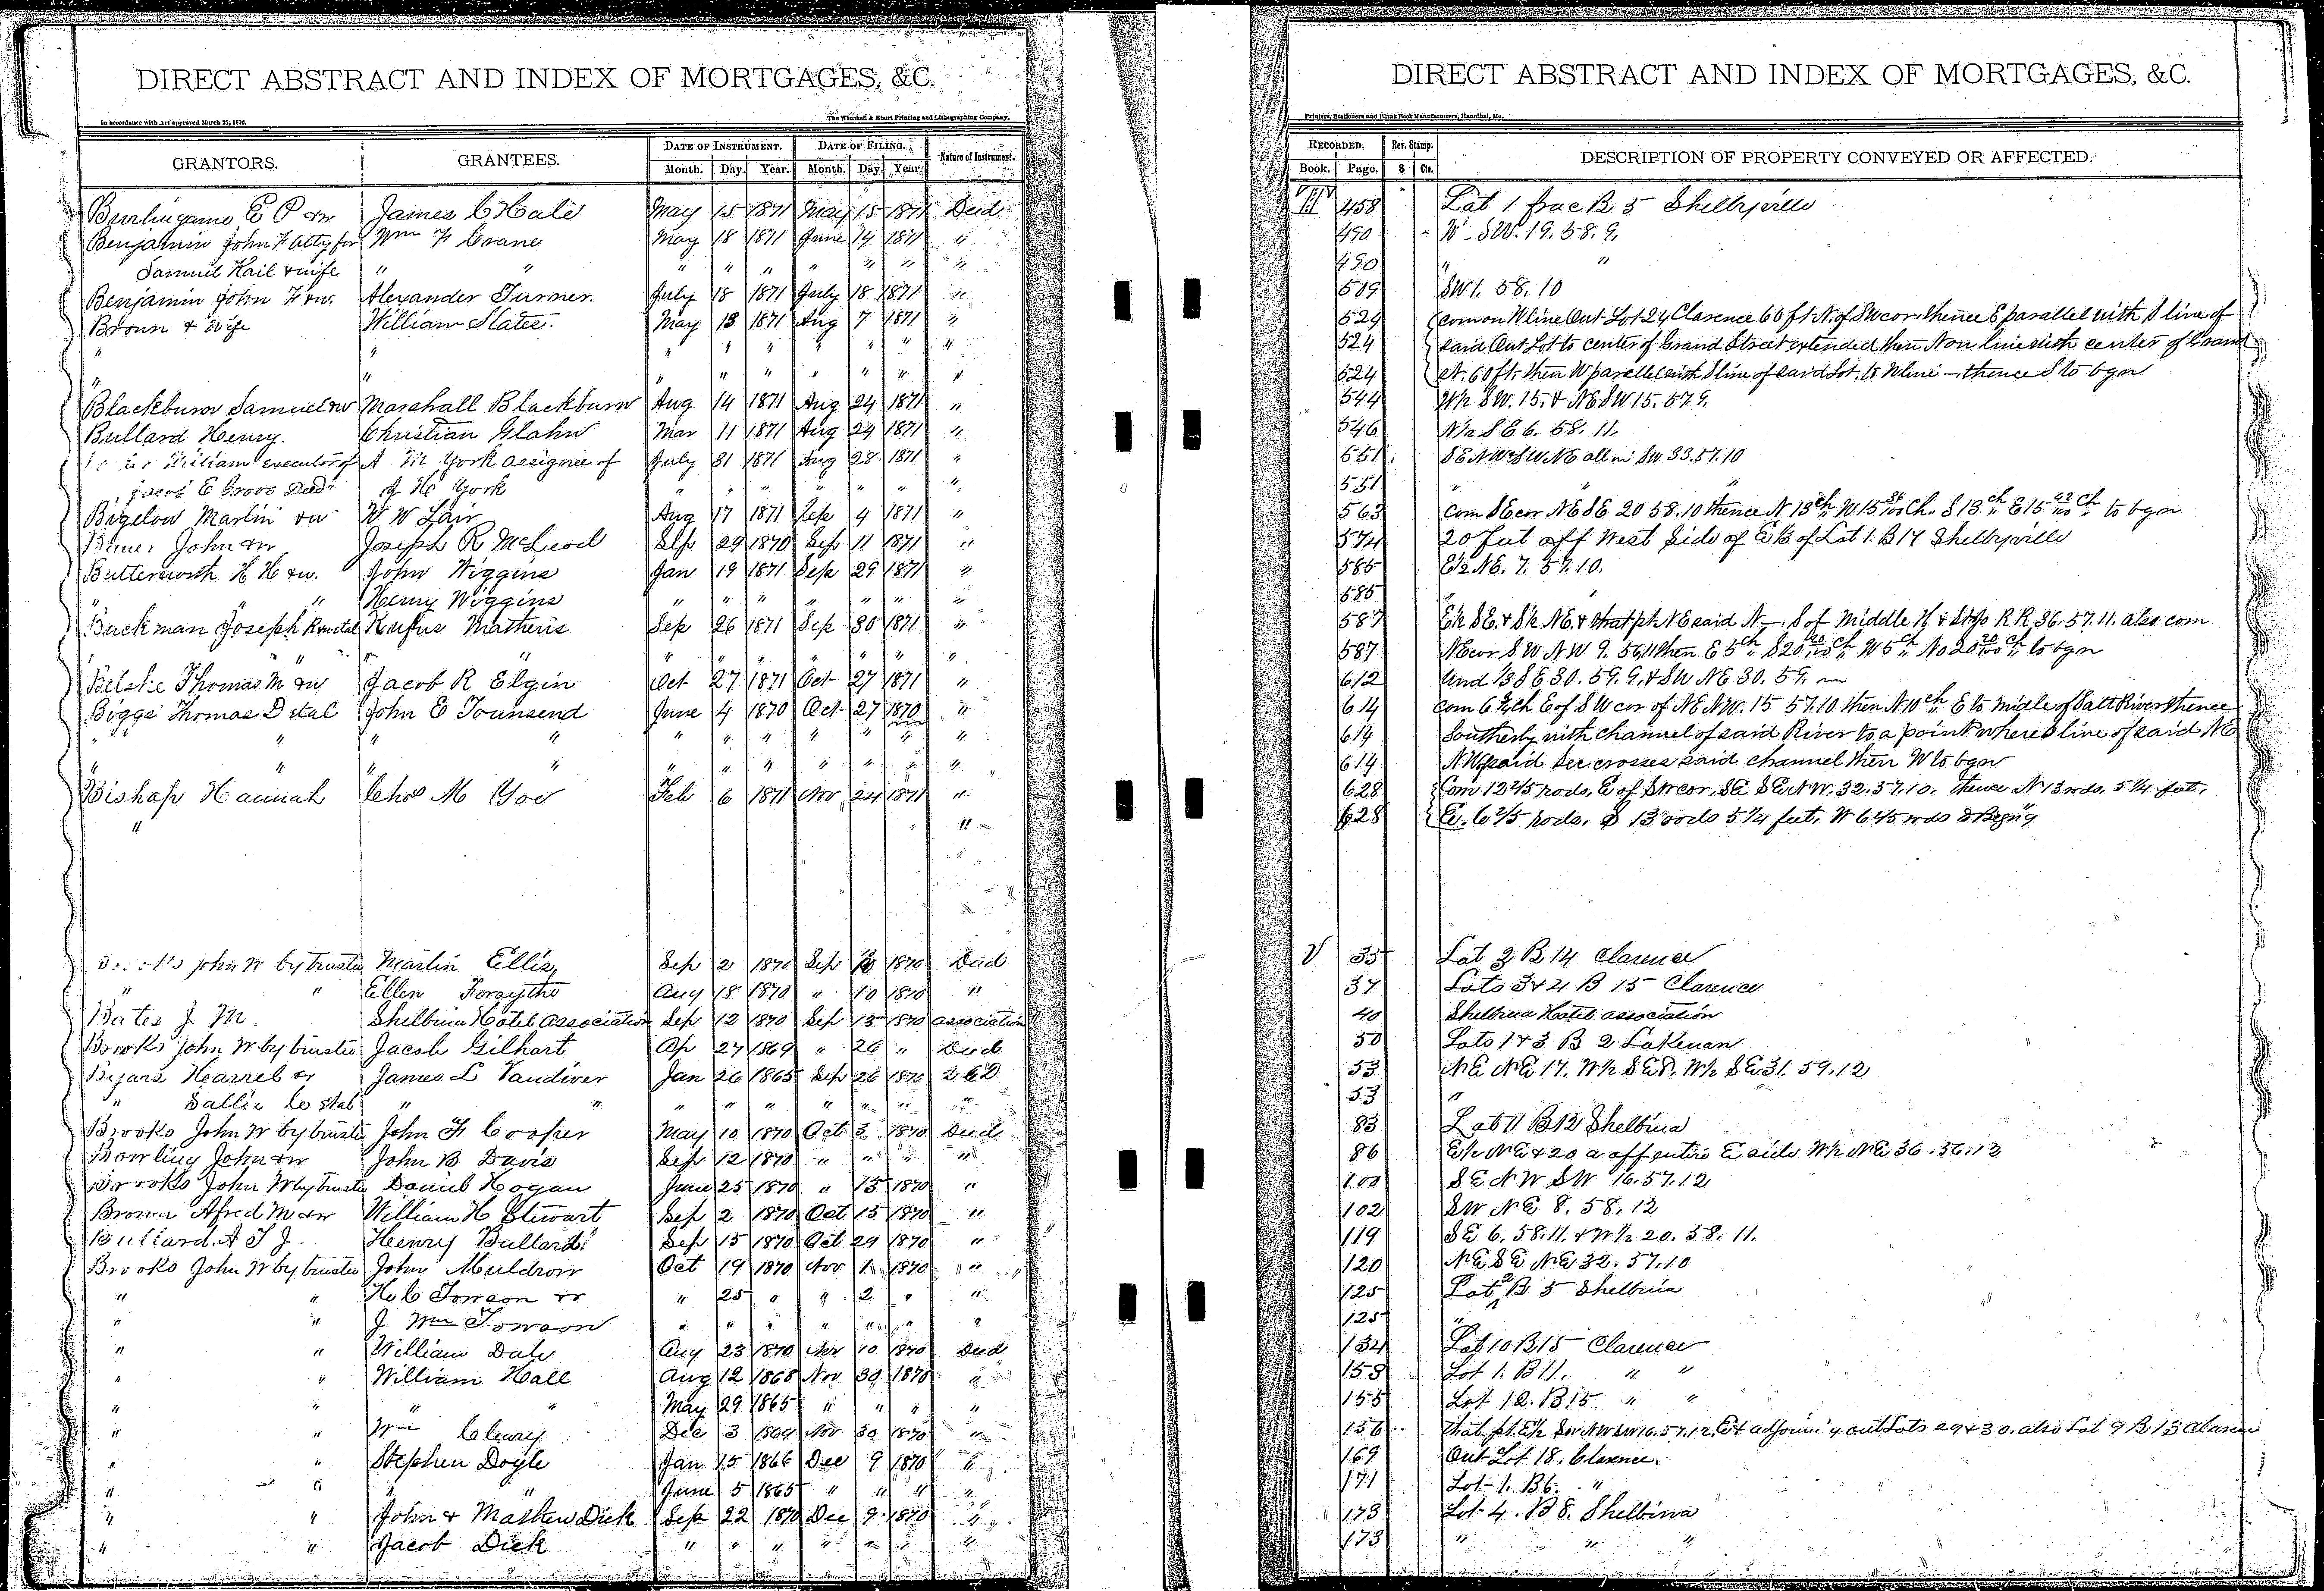 DIRECT ABSTRACT AND INDEX OF MORTGAGES, &C.
In accordance with Act approved March 25, 1870.
The Winchell & Ebert Printing and Lithographing Company,
GRANTORS. GRANTEES. DATE OF INSTRUMENT. DATE OF FILING. Nature of Instrument.
Month. Day. Year. Month. Day. Year.
Burlingame E P & w James C Hale May 15 1871 May 15 1871 Deed
Benjamin John F Atty for Wm F Crane May 18 1871 June 14 1871 "
Samuel Hail & wife " " " " " " " " "
Benjamin John F & w. Alexander Turner. July 18 1871 July 18 1871 "
Broun & Wife William Slater. May 13 1871 Aug 7 1871 "
" " " " " " " " "
" " " " " " " " "
Blackburn Samuel & w Marshall Blackburn Aug 14 1871 Aug 24 1871 "
Bullard Henry. Christian Glahn Mar 11 1871 Aug 24 1871 "
William executor of A M York assignee of July 31 1871 Aug 28 1871 "
Jacob E Groves Decd J H York " " " " " " "
Bigelow Martin & w W W Lair Aug 17 1871 Sep 4 1871 "
John & w Joseph R McLeod Sep 29 1870 Sep 11 1871 "
Butterworth H H & w. John Wiggins Jan 19 1871 Sep 29 1871 "
" " Henry Wiggins " " " " " " "
Buckman Joseph R & etal Rufus Matheris Sep 26 1871 Sep 30 1871 "
" " " " " " " " " " "
Thomas M & w Jacob R Elgin Oct 27 1871 Oct 27 1871 "
Biggs Thomas D etal John E Tounsend June 4 1870 Oct 27 1870 "
" " " " " " " " " " "
" " " " " " " " " " "
Bishop Hannah Chas M Yoe Feb 6 1871 Nov 24 1871 "
" "
John W by trustee Martin Ellis Sep 2 1870 Sep 10 1870 Deed
" " Ellen Forsythe Aug 18 1870 " 10 1870 "
Bates J M Shelbina Hotel Association Sep 12 1870 Sep 13 1870 association
Brooks John W by trustee Jacob Gilhart Ap 27 1869 " 26 " Deed
Byars Harrel & w James L Vandiver Jan 26 1865 Sep 26 1870 2 C D
" Sallie C etal " " " " " " " " "
Brooks John W by trustee John F Cooper May 10 1870 Oct 3 1870 Deed
Bowling John & w John B Davis Sep 12 1870 " " " "
Brooks John W by trustee Daniel Hogan June 25 1870 " 15 1870 "
Brown Afred M & w William H Stewart Sep 2 1870 Oct 15 1870 "
Bullard. A T J. Henry Bullard Sep 15 1870 Oct 29 1870 "
Brooks John W by trustee John Muldrow Oct 19 1870 Nov 1 1870 "
" " H C Towson " 25 " " 2 " "
" " J Wm Towson " " " " " " "
" " William Dale Aug 23 1870 Nov 10 1870 Deed
" " William Hall Aug 12 1868 Nov 30 1870 "
" " " " May 29 1865 " " " "
" " Wm Cleary Dec 3 1869 Nov 30 1870 "
" " Stephen Doyle Jan 15 1866 Dec 9 1870 "
" " " " June 5 1865 " " " "
" " John & Mathew Dick Sep 22 1870 Dec 9 1870 "
" " Jacob Dick " " " " " " "
DIRECT ABSTRACT AND INDEX OF MORTGAGES, &C.
Printers, Stationers and Blank Book Manufacturers, Hannibal, Mo.
RECORDED. Rev. Stamp. DESCRIPTION OF PROPERTY CONVEYED OR AFFECTED.
Book. Page. $ Cts.
458 Lot 1 frac B 5 Shelbyville
490 W- SW. 19. 58. 9.
490 " "
509 SW 1. 58. 10
524 com on W line Out Lot 24 Clarence 60 ft N. of SW cor. thence E parallel with S line of
524 said Out Lot to center of Grand Street extended then N on line with center of Grand
524 St. 60 ft. then W parallel with S line of said Lot. to W line - thence S to bgn
544 W½ SW. 15. & NE SW 15. 57 9.
546 N½ SE 6. 58. 11.
551 SE NW & SW NE all in SW 33. 57. 10
551 " "
563 com SE cor NE SE 20 58. 10 thence N 13 ch W 15 36/100 Ch. S 13 ch E 15 ch to bgn
574 20 feet off West side of E½ of Lot 1. B 17 Shelbyville
585 E½ NE. 7. 57. 10.
585 "
587 E½ SE. & S½ NE. & that pt NE said N-. S of Middle H & St Jo R R 36. 57. 11. also com
587 NE cor SW NW 9. 56. 11 then E 5 ch S 20 20/100 ch W 5 ch N 20 20/100 ch to bgn
612 Und 1/3 SE 30. 59. 9. & SW NE 30. 59.
614 com 6 ½ ch E of SW cor of NE NW. 15 57. 10 then N 10 ch E to midle of Salt River thence
614 Southerly with channel of said River to a point where S line of said NE
614 NW of said Sec crosses said channel then W to bgn
628 Com 12 2/5 rods. E of SW cor. SE SE NW. 32. 57. 10. thence N 13 rods. 5 1/4 feet.
628 E. 6 2/5 rods. S 13 rods 5 1/4 feet. W 6 2/5 rods to Begn'g
V 35 Lot 3 B 14 Clarence
37 Lots 3 & 4 B 15 Clarence
40 Shelbina Hotel association
50 Lots 1 & 3 B 2 Lakenan
53 NE NE 17. W½ SE 8. W½ SE 31. 59. 12
53 "
83 Lot 11 B 12 Shelbina
86 E½ NE & 20 a off entire E side W½ NE 36. 56. 12
100 SE NW SW 16. 57. 12
102 SW NE 8. 58. 12
119 SE 6. 58. 11. & W½ 20. 58. 11.
120 NE SE NE 32. 57. 10
125 Lot 2 B 5 Shelbina
125 "
134 Lot 10 B 15 Clarence
153 Lot 1. B 11. " "
155 Lot 12. B 15 " "
156 that pt. E½ SW NW SW 16. 57. 12. adjoining out Lots 29 & 30. also Lot 9 B 13 Clarence
169 Out Lot 18. Clarence.
171 Lot 1. B 6. "
173 Lot 4. B 8. Shelbina
173 " " "